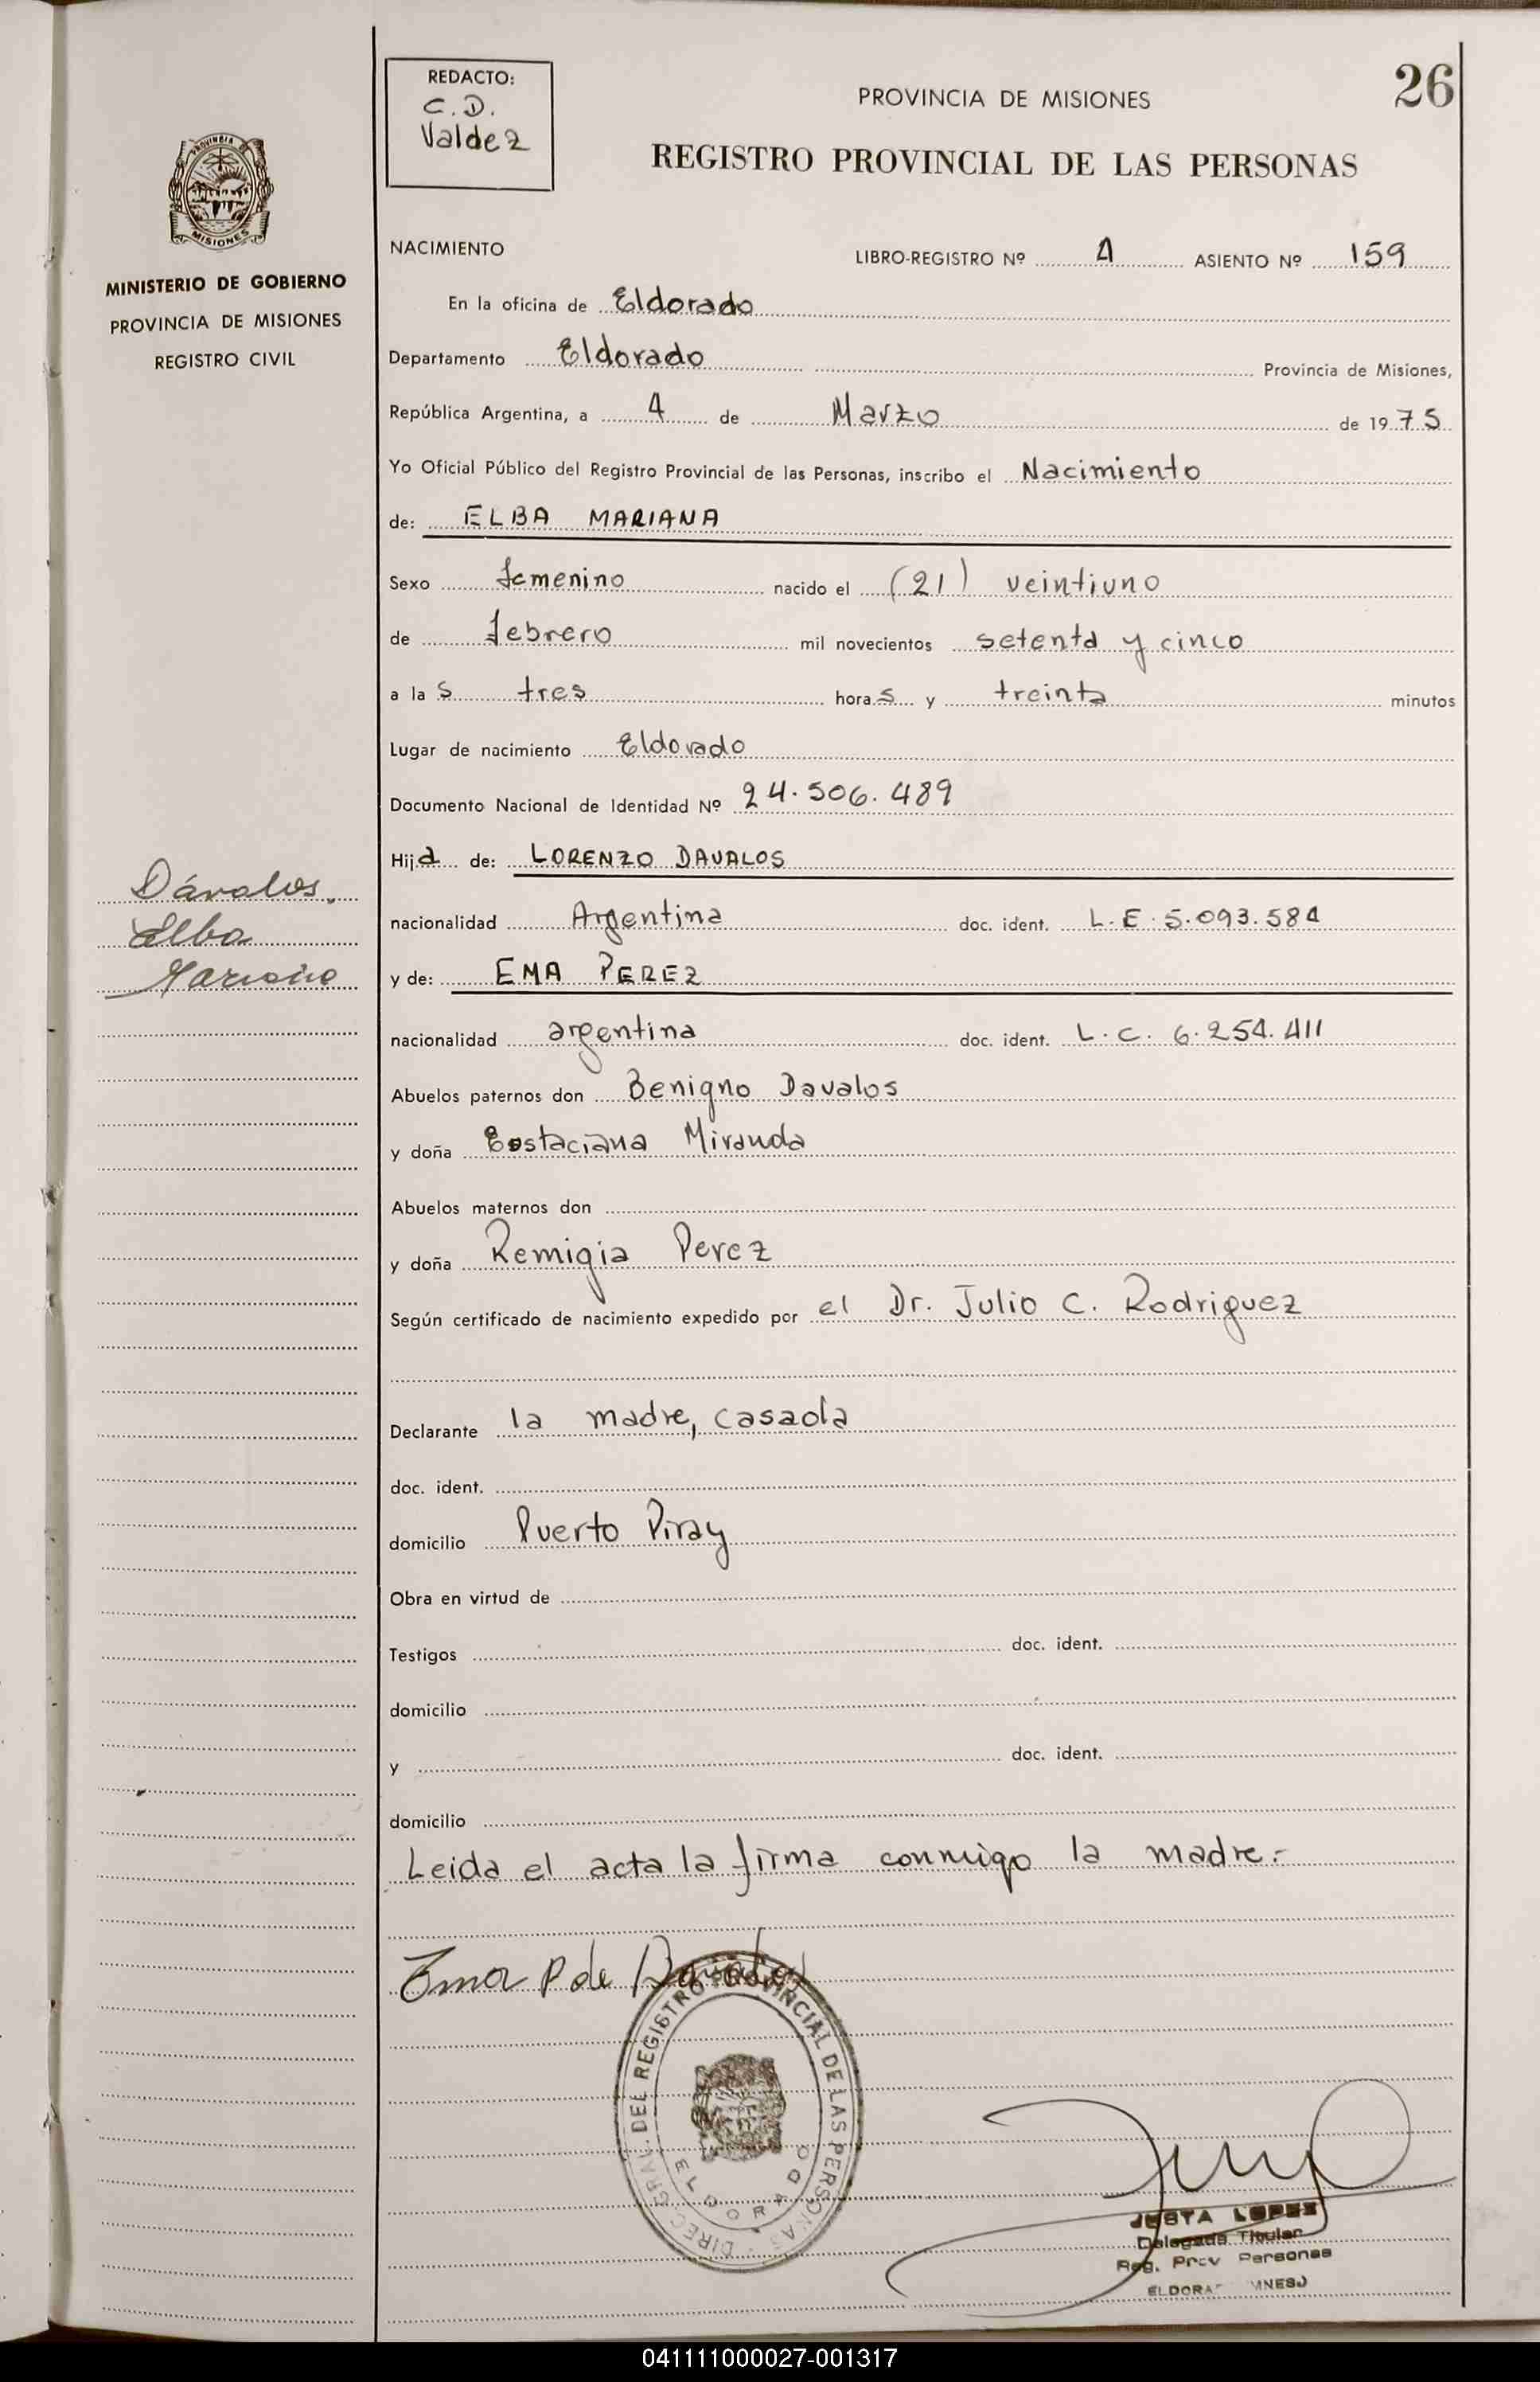 REDACTO:
C.D.
Valdez
PROVINCIA DE MISIONES
26
REGISTRO PROVINCIAL DE LAS PERSONAS
PROVINCIA DE
MISIONES
MINISTERIO DE GOBIERNO
PROVINCIA DE MISIONES
REGISTRO CIVIL
NACIMIENTO LIBRO-REGISTRO Nº 1 ASIENTO Nº 159
En la oficina de Eldorado
Departamento Eldorado Provincia de Misiones,
República Argentina, a 4 de Marzo de 1975
Yo Oficial Público del Registro Provincial de las Personas, inscribo el Nacimiento
de: ELBA MARIANA
Sexo femenino nacido el (21) veintiuno
de febrero mil novecientos setenta y cinco
a las tres horas y treinta minutos
Lugar de nacimiento Eldorado
Documento Nacional de Identidad Nº 24.506.489
Hija de: LORENZO DAVALOS
Dávalos,
Elba
Mariana
nacionalidad Argentina doc. ident. L.E. 5.093.584
y de: EMA PEREZ
nacionalidad argentina doc. ident. L.C. 6.254.411
Abuelos paternos don Benigno Davalos
y doña Eostaciana Miranda
Abuelos maternos don
y doña Remigia Perez
Según certificado de nacimiento expedido por el Dr. Julio C. Rodriguez
Declarante la madre, casada
doc. ident.
domicilio Puerto Piray
Obra en virtud de
Testigos doc. ident.
domicilio
y doc. ident.
domicilio
Leida el acta la firma conmigo la madre.-
Ema P de Davalos
DIREC. GRAL. DEL REGISTRO PROVINCIAL DE LAS PERSONAS
ELDORADO
JUSTA LOPEZ
Delegada Titular
Reg. Prov Personas
041111000027-001317